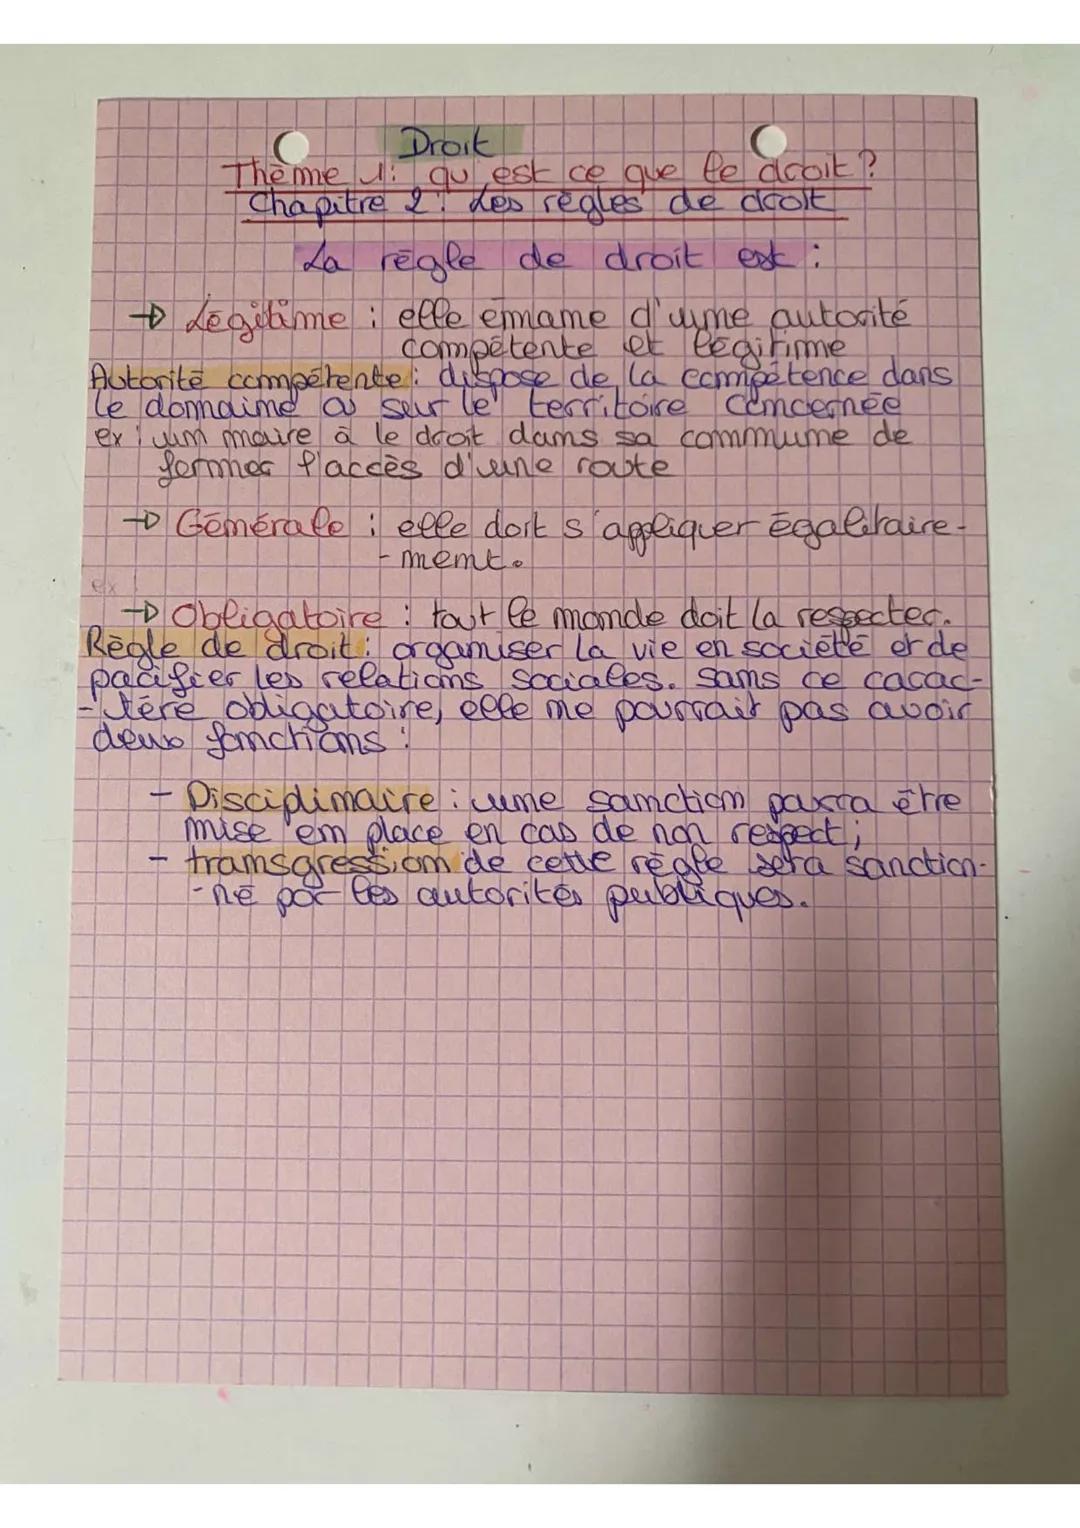 Droit
Thème 1: qu'est ce que le droit ?
Chapitre 2: Les règles de droit
La règle de droit est :
→ Légitime : elle émane d'une autorité
compétente et légitime
Autorité compétente : dispose de la compétence dans
le domaine ou sur le territoire concernée
ex : um maire à le droit dans sa commune de
fermer l'accès d'une route
→ Générale : elle doit s'appliquer égalitaire-
-ment.
ex :
→ Obligatoire : tout le monde doit la respecter.
Règle de droit : organiser la vie en société et de
pacifier les relations sociales. Sans ce carac-
-tère obligatoire, elle ne pourrait pas avoir
deux fonctions :
- Disciplinaire : une sanction pourra être
mise en place en cas de non respect ;
- transgression de cette règle sera sanction-
-né par les autorités publiques.